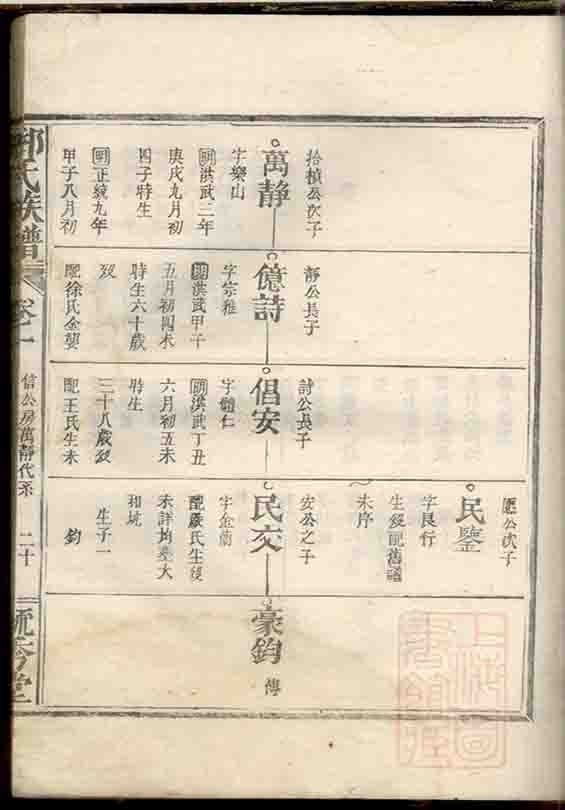 拾楨公次子
萬靜
字樂山
明洪武三年
庚戌九月初
四子時生
明正統九年
甲子八月初
靜公長子
億詩
字宗雅
明洪武甲子
五月初四未
時生六十歲
歿
配徐氏金嬰
詩公長子
倡安
字體仁
明洪武丁丑
六月初五未
時生
三十八歲歿
配王氏生未
公次子
民鑒
字艮行
生歿配舊譜
未序
安公之子
民交
字金蘭
配嚴氏生歿
未詳均葬大
和坑
生子一
鈞
豪鈞
傳
氏族譜
卷一
信公房萬靜代系
二十
上海圖書館藏